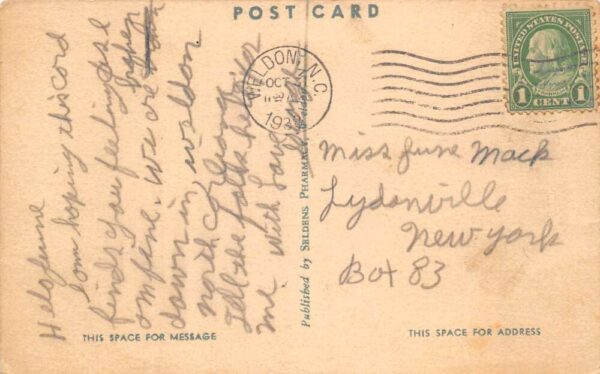 POST CARD
Helo June
I am hoping this card
finds you feeling
am fine. we are
down in weldon
north
Tell the folks hello for
me. With Love
Published by SELDENS PHARMACY
WELDON, N.C.
OCT
193
UNITED STATES POSTAGE
1 CENT 1
Miss June Mack
Lydonville
New york
Box 83
THIS SPACE FOR MESSAGE
THIS SPACE FOR ADDRESS